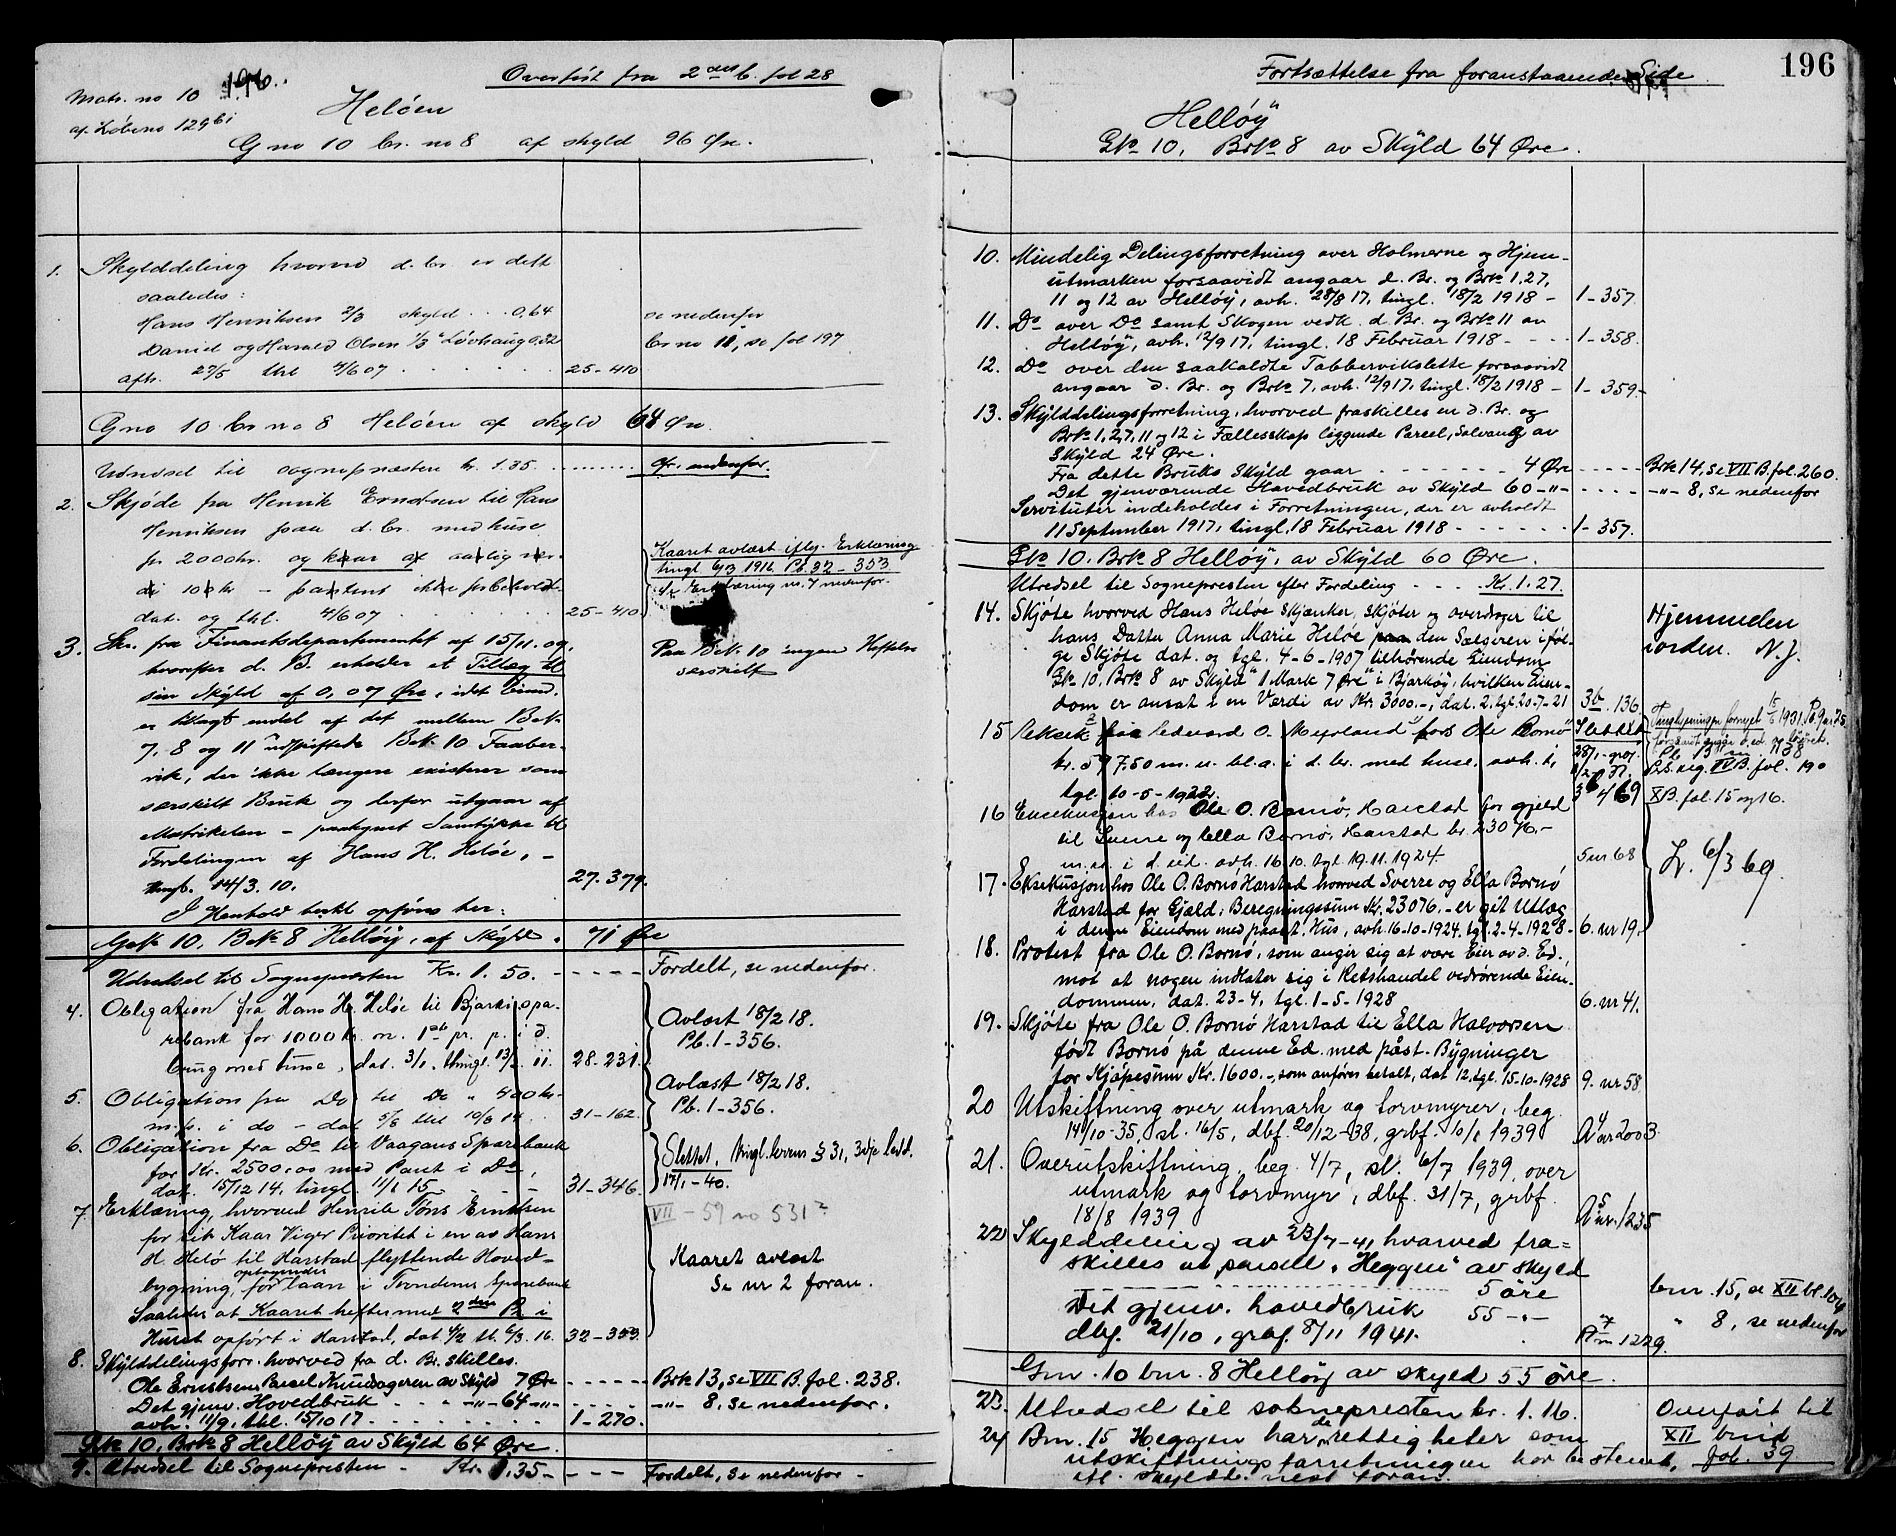 Overført fra 2den b. fol 28
Matr. no 10
af Løbeno 129 bi
Heløen
G no 10 br. no 8 af skyld 96 Øre.
1. Skylddeling hvorved d. br. er delt
saaledes:
Hans Henriksen 2/3 skyld . . . 0,64
se nedenfor
Daniel og Harald Olsen 1/3 "Løvhaug" 0,32
br no 11, se fol 197
afh. 27/5 thl 4/6 07 . . . . . . 25-410
G no 10 br no 8 Heløen af skyld 64 Øre.
Udredsel til sognepræsten kr. 1.35 . . . . . .
cfr. nedenfor.
2. Skjøde fra Henrik Erntsen til Hans
Henriksen paa d. br. med huse
for 2000 kr. og kaar af aarlig vær-
di 100 kr - panteret ikke forbeholdt
dat. og thl. 4/6 07 . . . . 25-410
Kaaret avlæst iflg. Erklæring
tingl 6/3 1916. Pb. 32 - 353
se Erklæring no. 7 nedenfor.
3. Skr. fra Finantsdepartementet af 15/11.09,
hvorefter d. B. erholder et Tillæg til
sin Skyld af 0,07 Øre, idet Eiend.
er tillagt endel af det mellem Bk.
7, 8 og 11 udskiftede Bk. 10 Faaber-
vik, der ikke længere existerer som
særskilt Bruk og derfor utgaar af
Matrikelen - paategnet Samtykke til
Fordelingen af Hans H. Heløe, -
tingl. 14/3. 10. 27. 379.
Paa Bek. 10 ingen Heftelse
særskilt
I Henhold hertil opføres her:
G.No 10. B.No 8 Helløy, af Skyld . 71 Øre
Udredsel til Sognepræsten Kr. 1. 50. - - - - -
Fordelt, se nedenfor.
4. Obligation fra Hans H. Heløe til Bjarkø spa-
rebank for 1000 kr. m. 1ste pr. p. i d.
brug med huse, dat. 3/1, thingl. 13/2. 11. 28. 231.
Avlæst 18/2 18.
Pb. 1-356.
5. Obligation fra Do til Do " 400 kr.
m. p. i do - dat. 5/8 thl 10/8 14. 31-162.
Avlæst 18/2 18.
Pb. 1-356.
6. Obligation fra Do til Vaagans Sparebank
for Kr. 2500,00 med Pant i Do,
dat. 15/12 14, tingl. 11/1 15 - - - 31-346.
Slettet, tingl. lovens § 31, 3dje ledd.
17/1-40.
7. Erklæring, hvorved Henrik Tøns Erntsen
for sit Kaar Viger Prioritet i en av Hans
H. Helø til Harstad flyttende Hoved-
bygning, for optagendes laan i Trondenes Sparebank
Saaledes at Kaaret hefter med 2den Pr. i
Huset opført i Harstad, dat 4/2 tl. 6/3. 16. 32-353.
VII - 59 no 531?
Kaaret avlæst
Se nr 2 foran.
8. Skylddelingsforr. hvorved fra d. Br. skilles.
Ole Erntsens Parcel Knudsageren av Skyld 7 Øre - - - - -
Brk 13, se VII B. fol. 238.
Det gjenv. Hovedbruk - - " -"- 64 -"-
-"- 8, se nedenfor.
avh. 11/9, thl. 15/10 17 - - - - - 1-270.
Gk 10, Brk 8 Helløy av Skyld 64 Øre.
9. Utredsel til Sognepresten - Kr. 1.35 - - - -
Fordelt, se nedenfor -
196
Fortsættelse fra foranstaaende Side
Helløy
Gk 10, Brk 8 av Skyld 64 Øre.
10. Mindelig Delingsforretning over Holmerne og Hjem-
utmarken forsaavidt angaar d. Br. og Brk 1, 27,
11 og 12 av Helløy, avh. 28/8 17, tingl. 18/2 1918 - 1-357.
11. Do over Do samt Skogen vedk. d. Br. og Brk 11 av
Helløy, avh. 12/9 17, tingl. 18 Februar 1918 - - - 1-358.
12. Do over den saakaldte Tabbervikslette forsaavidt
angaar d. Br. og Brk 7, avh. 12/9 17, tingl. 18/2 1918 - 1-359.
13. Skylddelingsforretning, hvorved fraskilles en d. Br. og
Brk 1, 2, 7, 11 og 12 i Fællesskap liggende Parcel, Solvang av
Skyld 24 Øre.
Fra dette Bruks Skyld gaar - - - - - - 4 Øre - - - -
Brk 14, se VII B. fol. 260.
Det gjenværende Hovedbruk av Skyld 60 -"- - - - -
-"- 8, se nedenfor
Servituter indeholdes i Forretningen, der er avholdt
11 September 1917, tingl. 18 Februar 1918 - - - - - - 1-357.
Gk 10. Brk 8 Helløy, av Skyld 60 Øre.
Utredsel til Sognepresten efter Fordeling - - - Kr. 1.27.
14. Skjøte hvorved Hans Heløe skjænker, skjøter og overdrager til
hans Datter Anna Marie Heløe den Sælgeren iføl-
ge Skjøte dat. og tgl. 4-6-1907 tilhørende Eiendom
Gk 10, Brk 8 av Skyld "1 Mark 7 Øre" i Bjarkøy, hvilken Eien-
dom er ansat i en Verdi av Kr. 3000.-, dat. 2, tgl. 20-7-21 3b. 136
Hjemmelen
iorden. N.J.
15 Eksek. fra Edvard O. Myrland hos Ole Bornø
kr. 577,50 m. v. bl. a. i d. br. med huse, avh. 1,
tgl. 10-5-1922. 3b 469
Slettet
16 Exsekusjon hos Ole O. Bornø, Harstad for gjeld
til Sverre og Ella Bornø, Harstad kr. 23076,-
m. v. i d. eid. avh. 16.10. tgl 19.11.1924 5 nr 68
X B. fol. 15 og 16.
17. Eksekusjon hos Ole O. Bornø Harstad hvorved Sverre og Ella Bornø
Harstad for Gjæld, Beregningssum Kr. 23076.- er git Utlæg
i denne Eiendom med paast. Hus, avh. 16-10-1924, tgl. 2-4-1928 - 6. nr 19.
L. 6/3 69.
18. Protest fra Ole O. Bornø, som angir sig at være Eier av d. Ed.,
mot at nogen indlater sig i Retshandel vedrørende Eien-
dommen, dat. 23-4, tgl. 1-5-1928 6. nr 41.
19. Skjøte fra Ole O. Bornø Harstad til Ella Halvorsen
født Bornø på denne Ed. med påst. Bygninger
for Kjøpesum Kr. 1600.-, som anføres betalt, dat 12, tgl. 15-10-1928 9. nr 58.
20 Utskiftning over utmark og torvmyrer, beg.
14/10-35, sl. 16/5, dbf. 20/12-38, grbf. 10/1 1939 A4 nr 2003.
21. Overutskiftning, beg. 4/7, sl. 6/7 1939, over
utmark og torvmyr, dbf. 31/7, grbf.
18/8 1939 A5 nr. 1235
22 Skylddeling av 23/7-41 hvorved fra=
skilles en parsell "Heggen" av skyld
5 øre
bnr. 15, se XII bl. 104
Det gjenv. hovedbruk 55 -"-
" 8, se nedenfor
dbf. 21/10, grbf. 8/11 1941. A7 nr 1229.
Gnr. 10 bnr. 8 Helløy av skyld 55 øre.
23. Utredsel til soknepresten kr. 1.16.
Overført til
XII bind
fol. 39
24 Bnr. 15 Heggen har de rettigheter som
utskiftningsforretningen har bestemt,
sfl. skyldd. nest foran.